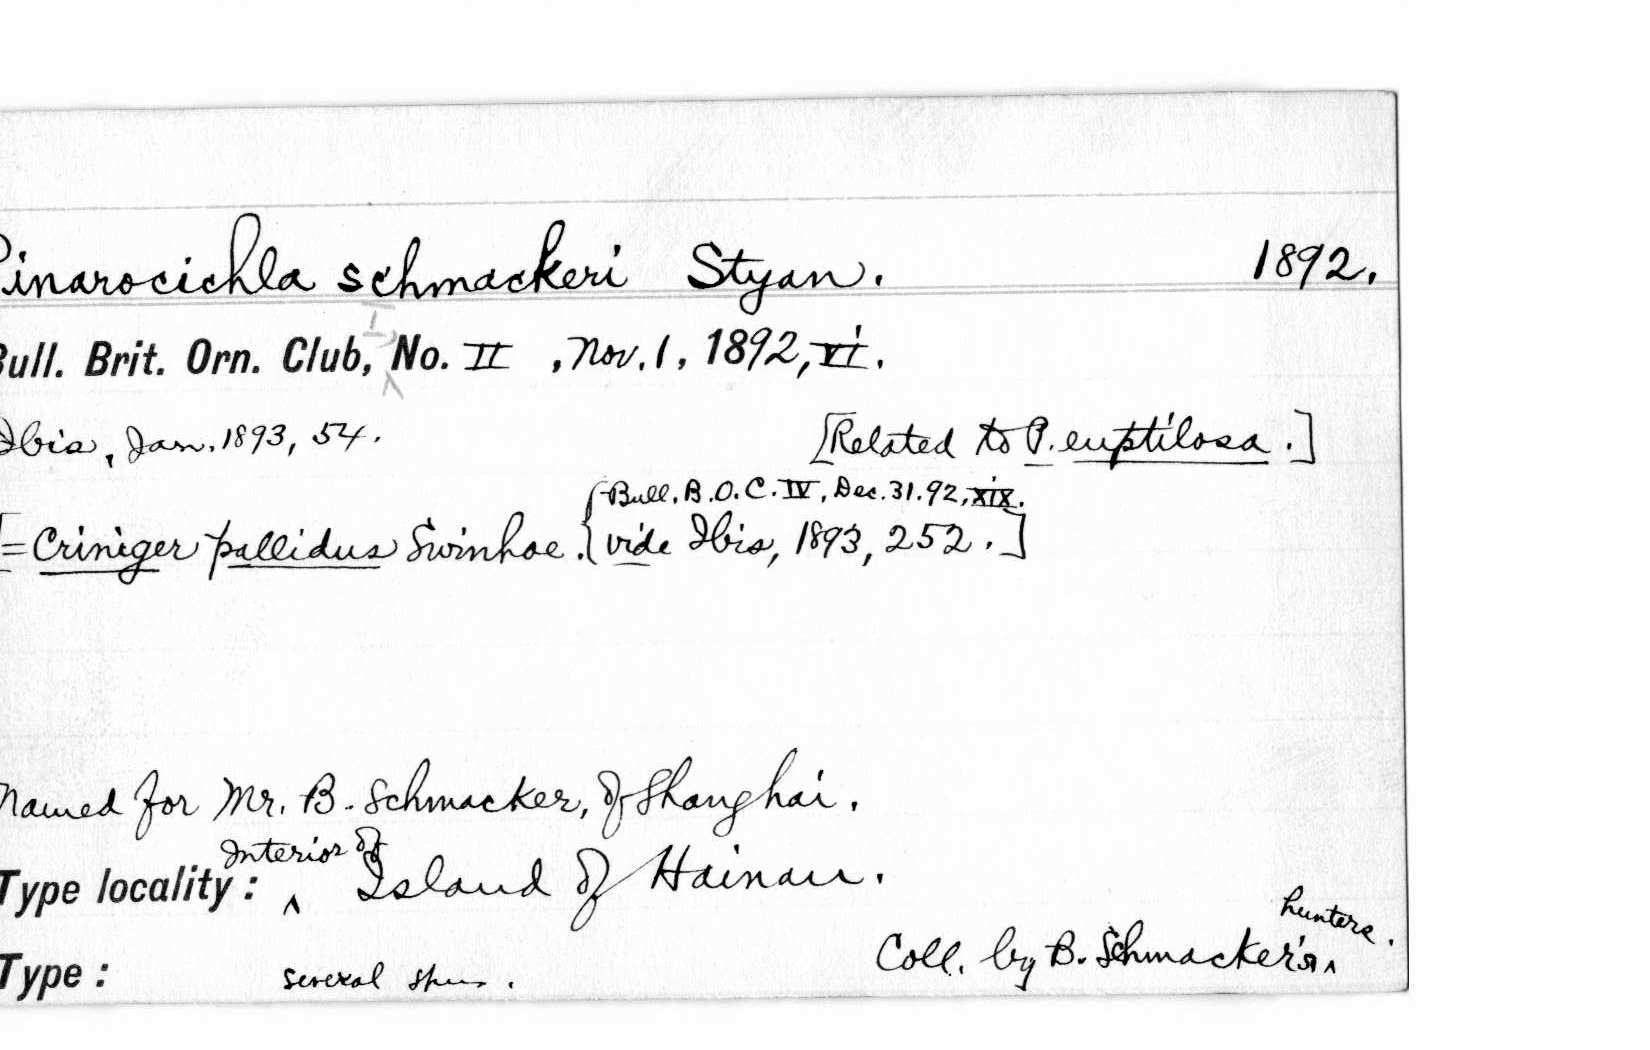 Pinarocichla schmackeri Styan. 1892.
Bull. Brit. Orn. Club, I, No. II, Nov. 1, 1892, vi.
Ibis, Jan. 1893, 54. [Related to P. euptilosa.]
Bull. B.O.C. IV, Dec. 31. 92, xix.
[= Criniger pallidus Swinhoe. { vide Ibis, 1893, 252.]
Named for Mr. B. Schmacker, of Shanghai.
Interior of
Type locality: ^ Island of Hainan.
hunters.
Type: several Coll. by B. Schmacker's ^